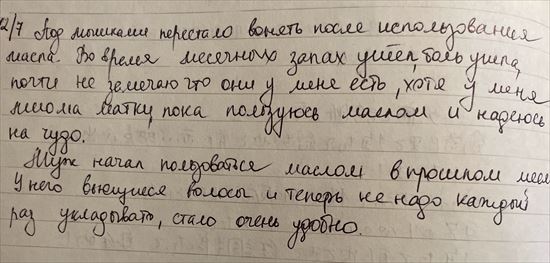 12/7 Под мышками перестало вонять после использования
масла. Во время месечных запах ушел, боль ушла,
почти не замечаю что они у меня есть, хотя у меня
миома матки, пока пользуюсь маслом и надеюсь
на чудо.
Муж начал пользоваться маслом в прошлом
У него вьющиеся волосы и теперь не надо каждый
раз укладывать, стало очень удобно.